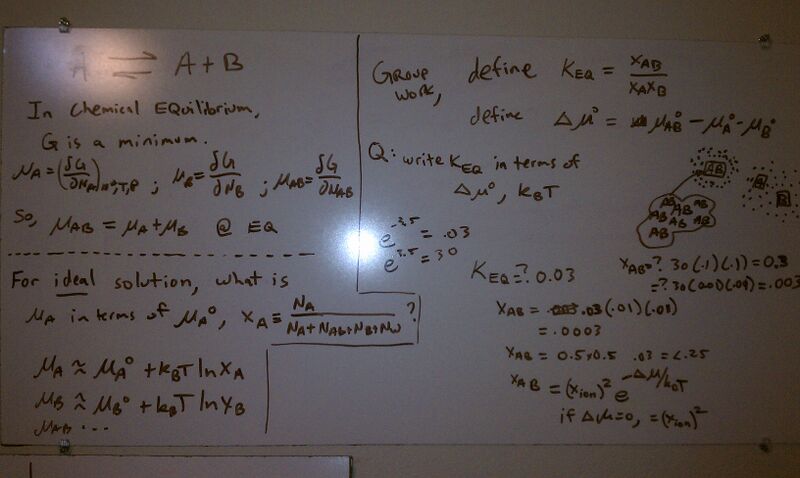 A ⇌ A + B
In Chemical Equilibrium,
G is a minimum.
μA = (δG/δNA)N,T,P ; μB = δG/δNB ; μAB = δG/δNAB
So, μAB = μA + μB @ EQ
For ideal solution, what is
μA in terms of μA°, XA ≡ NA/(NA + NAB + NB + NW) ?
μA ≈ μA° + kBT ln XA
μB ≈ μB° + kBT ln XB
μAB ...
Group work, define KEQ = XAB/(XAXB)
define Δμ° = μAB° - μA° - μB°
Q: write KEQ in terms of
Δμ°, kBT
AB
B
B
AB AB AB
AB AB AB
AB
e^-3.5 = .03
e^3.5 = 30
KEQ =? 0.03
XAB =? 30(.1)(.1) = 0.3
=? 30(.01)(.01) = .003
XAB = .03(.01)(.01)
= .0003
XAB = 0.5 x 0.5 .03 = <.25
XAB = (Xion)² e^-Δμ/kBT
if Δμ=0, = (Xion)²